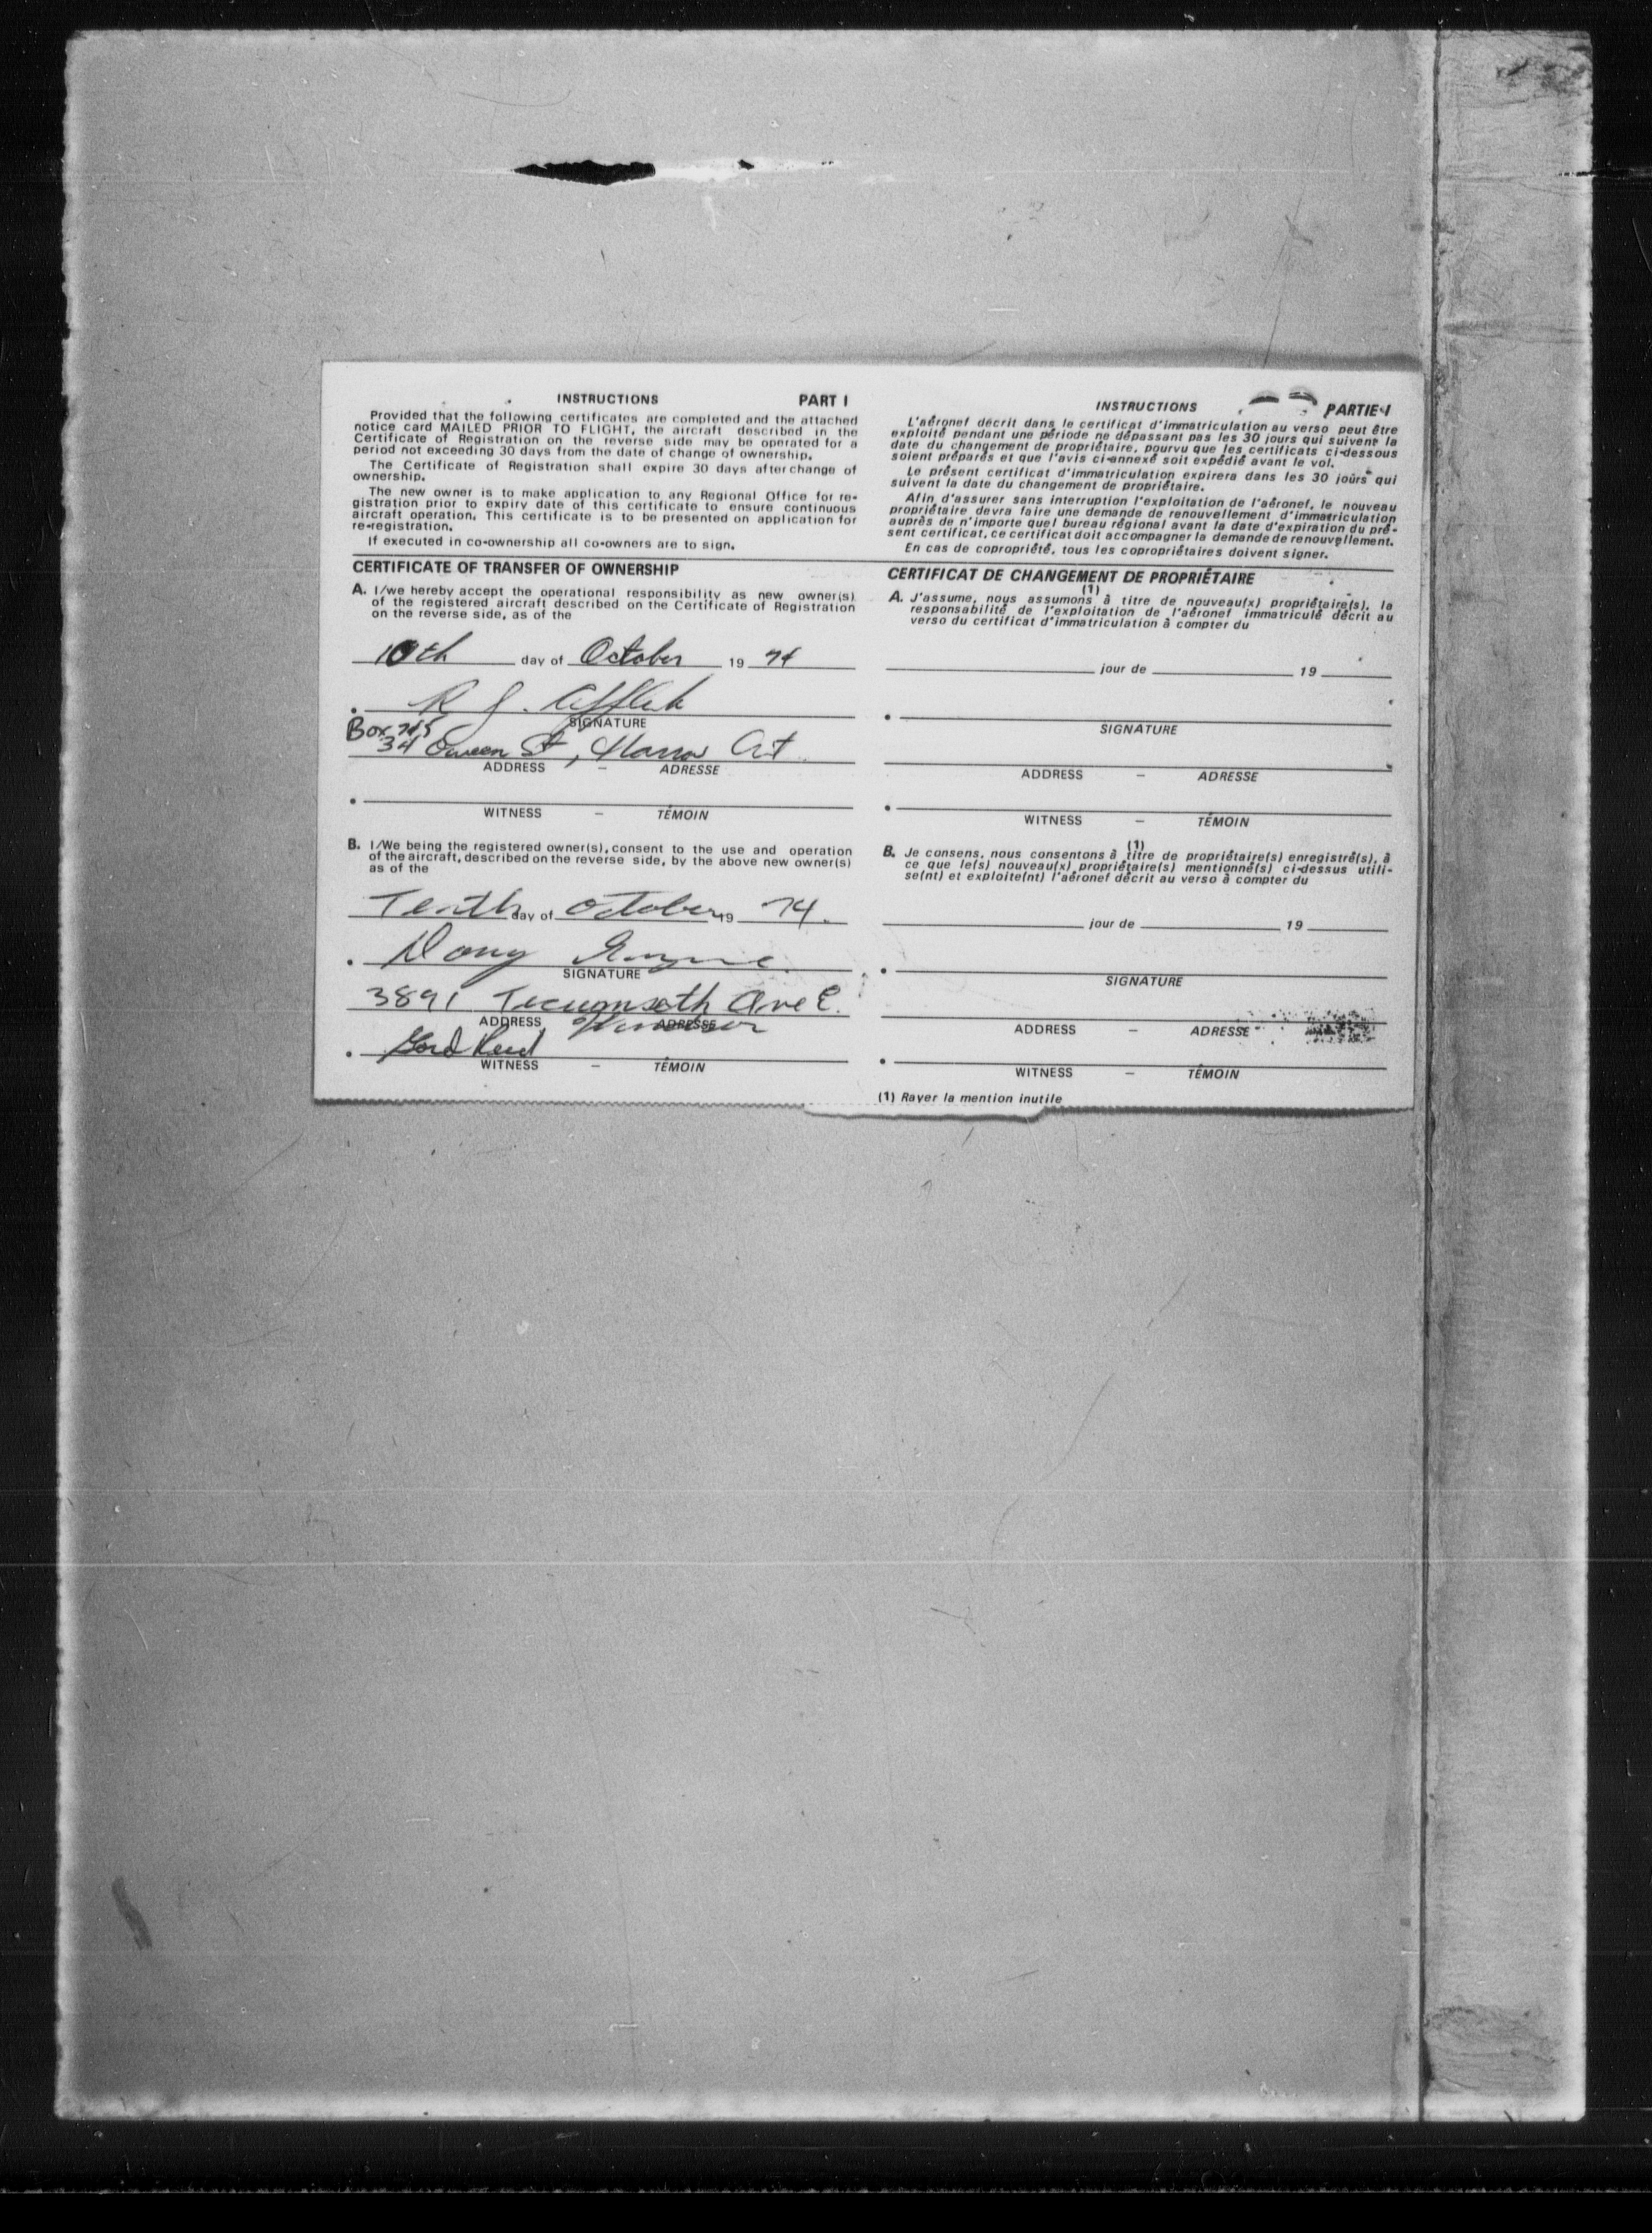 INSTRUCTIONS PART I
Provided that the following certificates are completed and the attached
notice card MAILED PRIOR TO FLIGHT, the aircraft described in the
Certificate of Registration on the reverse side may be operated for a
period not exceeding 30 days from the date of change of ownership.
The Certificate of Registration shall expire 30 days after change of
ownership.
The new owner is to make application to any Regional Office for re-
gistration prior to expiry date of this certificate to ensure continuous
aircraft operation. This certificate is to be presented on application for
re-registration.
If executed in co-ownership all co-owners are to sign.
CERTIFICATE OF TRANSFER OF OWNERSHIP
A. I/we hereby accept the operational responsibility as new owner(s)
of the registered aircraft described on the Certificate of Registration
on the reverse side, as of the
10th day of October 19 74
R J.
SIGNATURE
Box
34 Queen St, Harrow Ont
ADDRESS – ADRESSE
WITNESS – TÉMOIN
B. I/We being the registered owner(s), consent to the use and operation
of the aircraft, described on the reverse side, by the above new owner(s)
as of the
Tenth day of October 19 74.
Doug
SIGNATURE
3891 Tecumseth Ave E.
ADDRESS Windsor ADRESSE
Gord Reid
WITNESS – TÉMOIN
INSTRUCTIONS PARTIE I
L'aéronef décrit dans le certificat d'immatriculation au verso peut être
exploité pendant une période ne dépassant pas les 30 jours qui suivent la
date du changement de propriétaire, pourvu que les certificats ci-dessous
soient préparés et que l'avis ci-annexé soit expédié avant le vol.
Le présent certificat d'immatriculation expirera dans les 30 jours qui
suivent la date du changement de propriétaire.
Afin d'assurer sans interruption l'exploitation de l'aéronef, le nouveau
propriétaire devra faire une demande de renouvellement d'immatriculation
auprès de n'importe quel bureau régional avant la date d'expiration du pré-
sent certificat, ce certificat doit accompagner la demande de renouvellement.
En cas de copropriété, tous les copropriétaires doivent signer.
CERTIFICAT DE CHANGEMENT DE PROPRIÉTAIRE
(1)
A. J'assume, nous assumons à titre de nouveau(x) propriétaire(s), la
responsabilité de l'exploitation de l'aéronef immatriculé décrit au
verso du certificat d'immatriculation à compter du
jour de 19
SIGNATURE
ADDRESS – ADRESSE
WITNESS – TÉMOIN
(1)
B. Je consens, nous consentons à titre de propriétaire(s) enregistré(s), à
ce que le(s) nouveau(x) propriétaire(s) mentionné(s) ci-dessus utili-
se(nt) et exploite(nt) l'aéronef décrit au verso à compter du
jour de 19
SIGNATURE
ADDRESS – ADRESSE
WITNESS – TÉMOIN
(1) Rayer la mention inutile